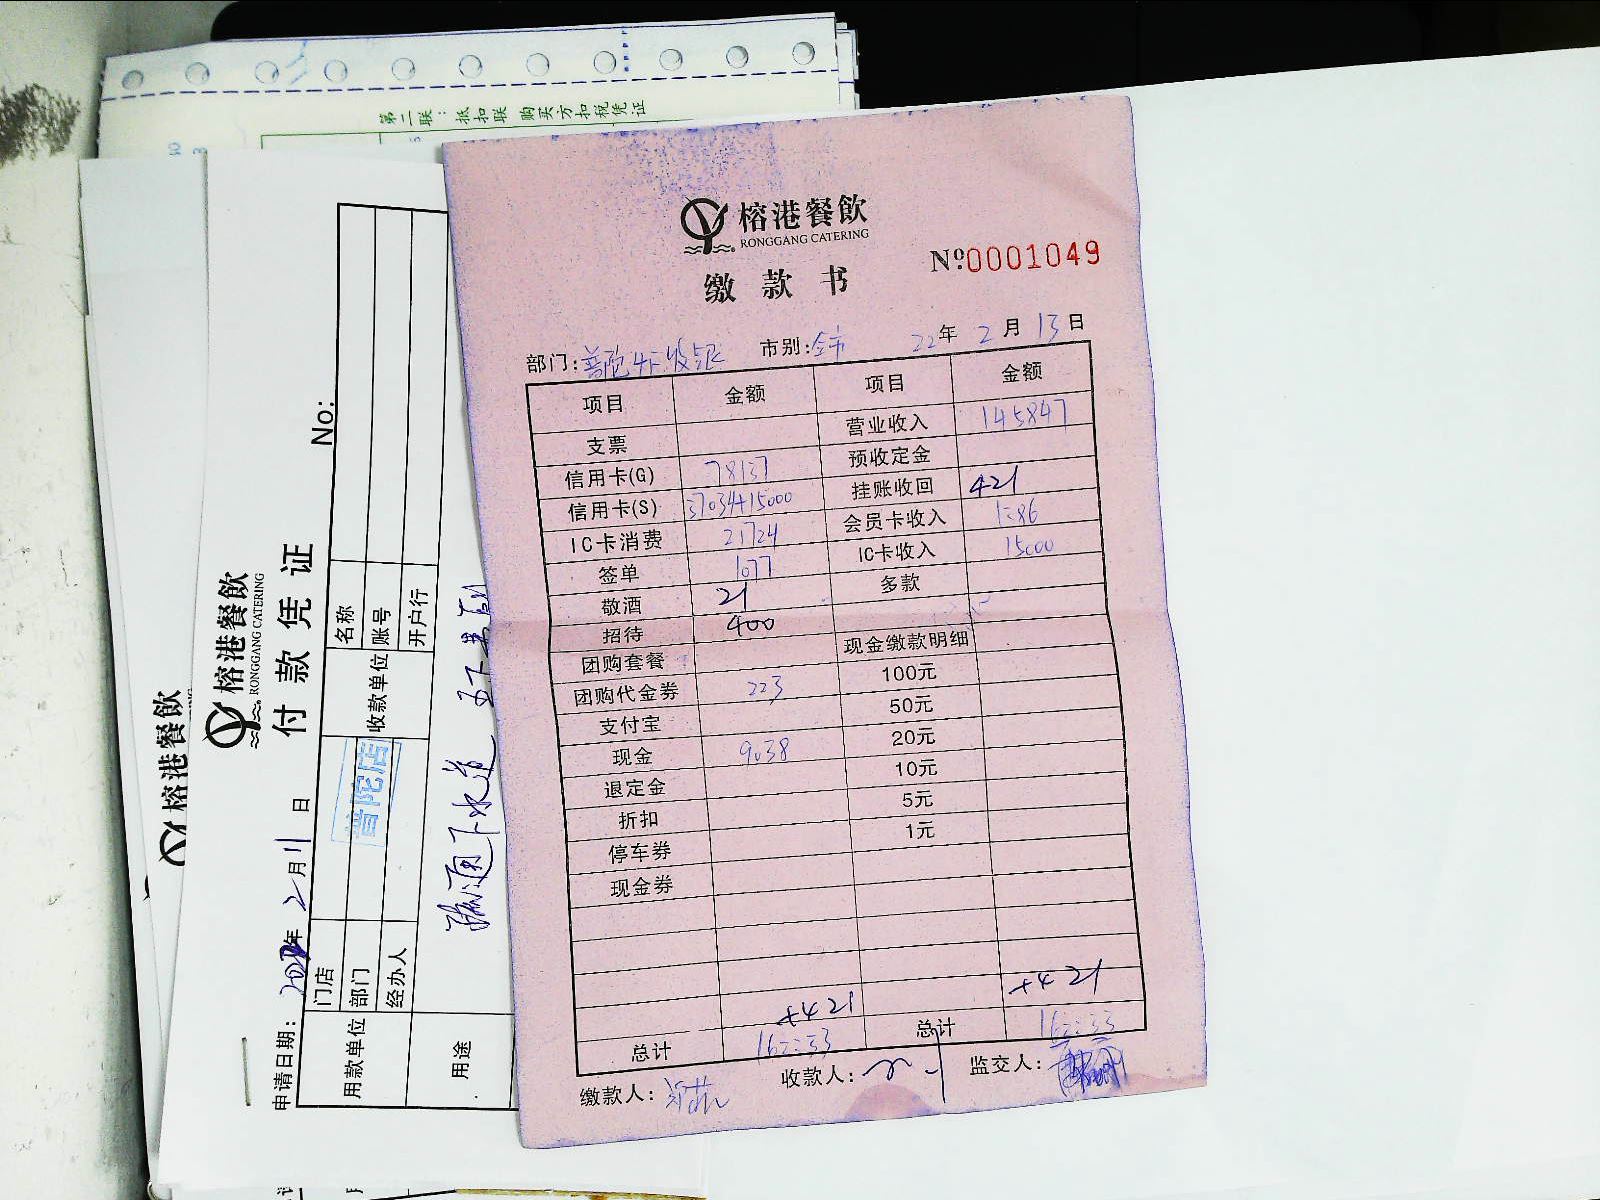 第二联：抵扣联 购买方扣税凭证
榕港餐飲
RONGGANG CATERING
缴款书
Nº0001049
部门：普陀店收银 市别：全市 22年2月13日
项目 金额 项目 金额
支票 营业收入 145847
信用卡(G) 78137 预收定金
信用卡(S) 37034+15000 挂账收回 421
IC卡消费 21724 会员卡收入 1286
签单 1077 IC卡收入 15000
敬酒 21 多款
招待 400
团购套餐 现金缴款明细
团购代金券 223 100元
支付宝 50元
现金 9038 20元
退定金 10元
折扣 5元
停车券 1元
现金券
+421 +421
总计 162233 总计 162233
缴款人： 收款人： 监交人：
榕港餐飲
RONGGANG CATERING
付款凭证
No:
申请日期： 年2月11日
用款单位 门店 普陀店 收款单位 名称
部门 账号
经办人 开户行
用途 疏通下水道
榕港餐飲